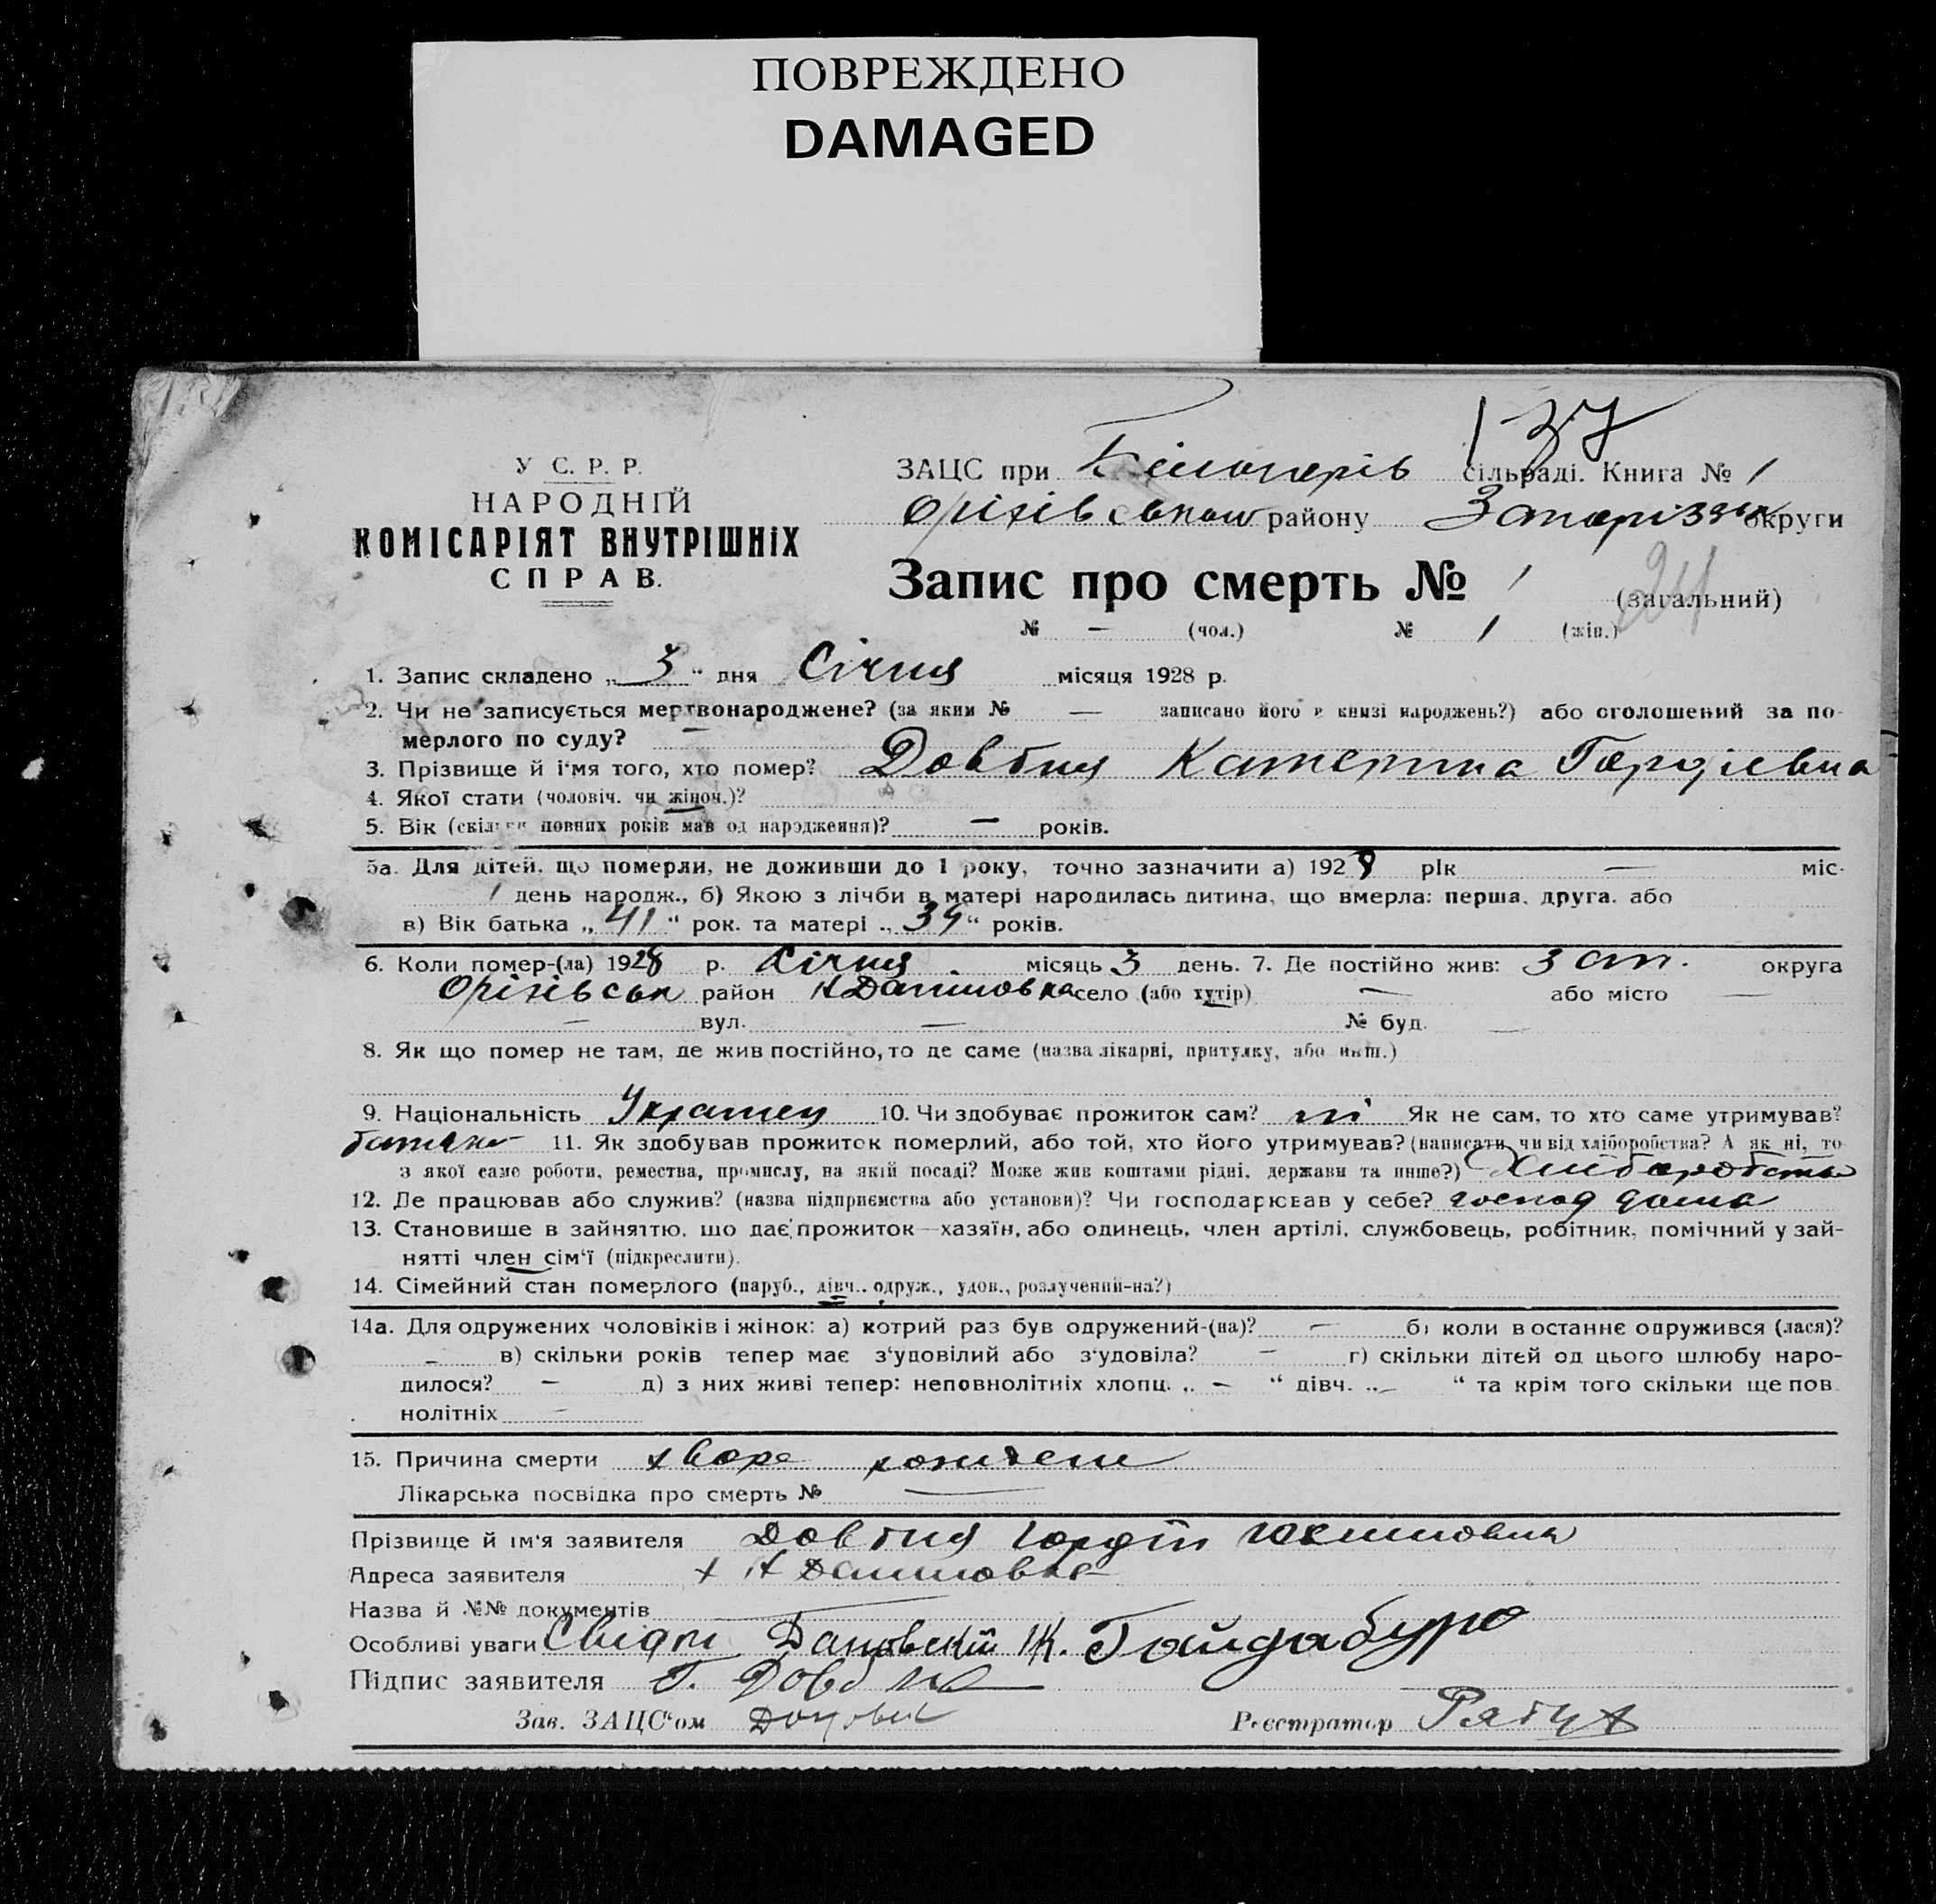 ПОВРЕЖДЕНО
DAMAGED
137
У С. Р. Р.
НАРОДНІЙ
КОМІСАРІЯТ ВНУТРІШНІХ
СПРАВ.
ЗАЦС при сільраді. Книга № 1
Оріхівського району Запорізьк округи
Запис про смерть № 1 (загальний)
№ — (чол.) № 1 (жін.)
1. Запис складено „ 3 “ дня Січня місяця 1928 р.
2. Чи не записується мертвонароджене? (за яким № — записано його в книзі народжень?) або оголошений за по-
мерлого по суду? —
3. Прізвище й і'мя того, хто помер? Довбня Катерина Гордієвна
4. Якої стати (чоловіч. чи жіноч.)?
5. Вік (скільки повних років мав од народження)? — років.
5а. Для дітей, що померли, не доживши до 1 року, точно зазначити а) 1928 рік — міс.
1 день народж., б) Якою з лічби в матері народилась дитина, що вмерла: перша, друга, або
в) Вік батька „ 41 “ рок. та матері „ 39 “ років.
6. Коли помер-(ла) 1928 р. Січня місяць 3 день. 7. Де постійно жив: Зап. округа
Оріхівськ район Н Даниловка село (або хутір) — або місто —
— вул. — № буд. —
8. Як що помер не там, де жив постійно, то де саме (назва лікарні, притулку, або инш.)
9. Національність Украинец 10. Чи здобуває прожиток сам? ні Як не сам, то хто саме утримував?
батько 11. Як здобував прожиток померлий, або той, хто його утримував? (написати, чи від хліборобства? А як ні, то
з якої саме роботи, ремества, промислу, на якій посаді? Може жив коштами рідні, держави та инше?) Хліборобство
12. Де працював або служив? (назва підприємства або установи)? Чи господарював у себе? господ дома
13. Становище в зайняттю, що дає прожиток—хазяїн, або одинець, член артілі, службовець, робітник, помічний у зай-
нятті член сім'ї (підкреслити).
14. Сімейний стан померлого (паруб., дівч., одруж., удов., розлучений-на?)
14а. Для одружених чоловіків і жінок: а) котрий раз був одружений-(на)? — б) коли востаннє одружився (лася)?
— в) скільки років тепер має з'удовілий або з'удовіла? — г) скільки дітей од цього шлюбу наро-
дилося? — д) з них живі тепер: неповнолітніх хлопц. „ — “ дівч. „ — “ та крім того скільки ще пов
нолітніх —
15. Причина смерти хворе
Лікарська посвідка про смерть № —
Прізвище й ім'я заявителя Довбня Гордій
Адреса заявителя х Н Даниловка
Назва й №№ документів —
Особливі уваги К. Гайдабура
Підпис заявителя Г. Довбня
Зав. ЗАЦС'ом Реєстратор